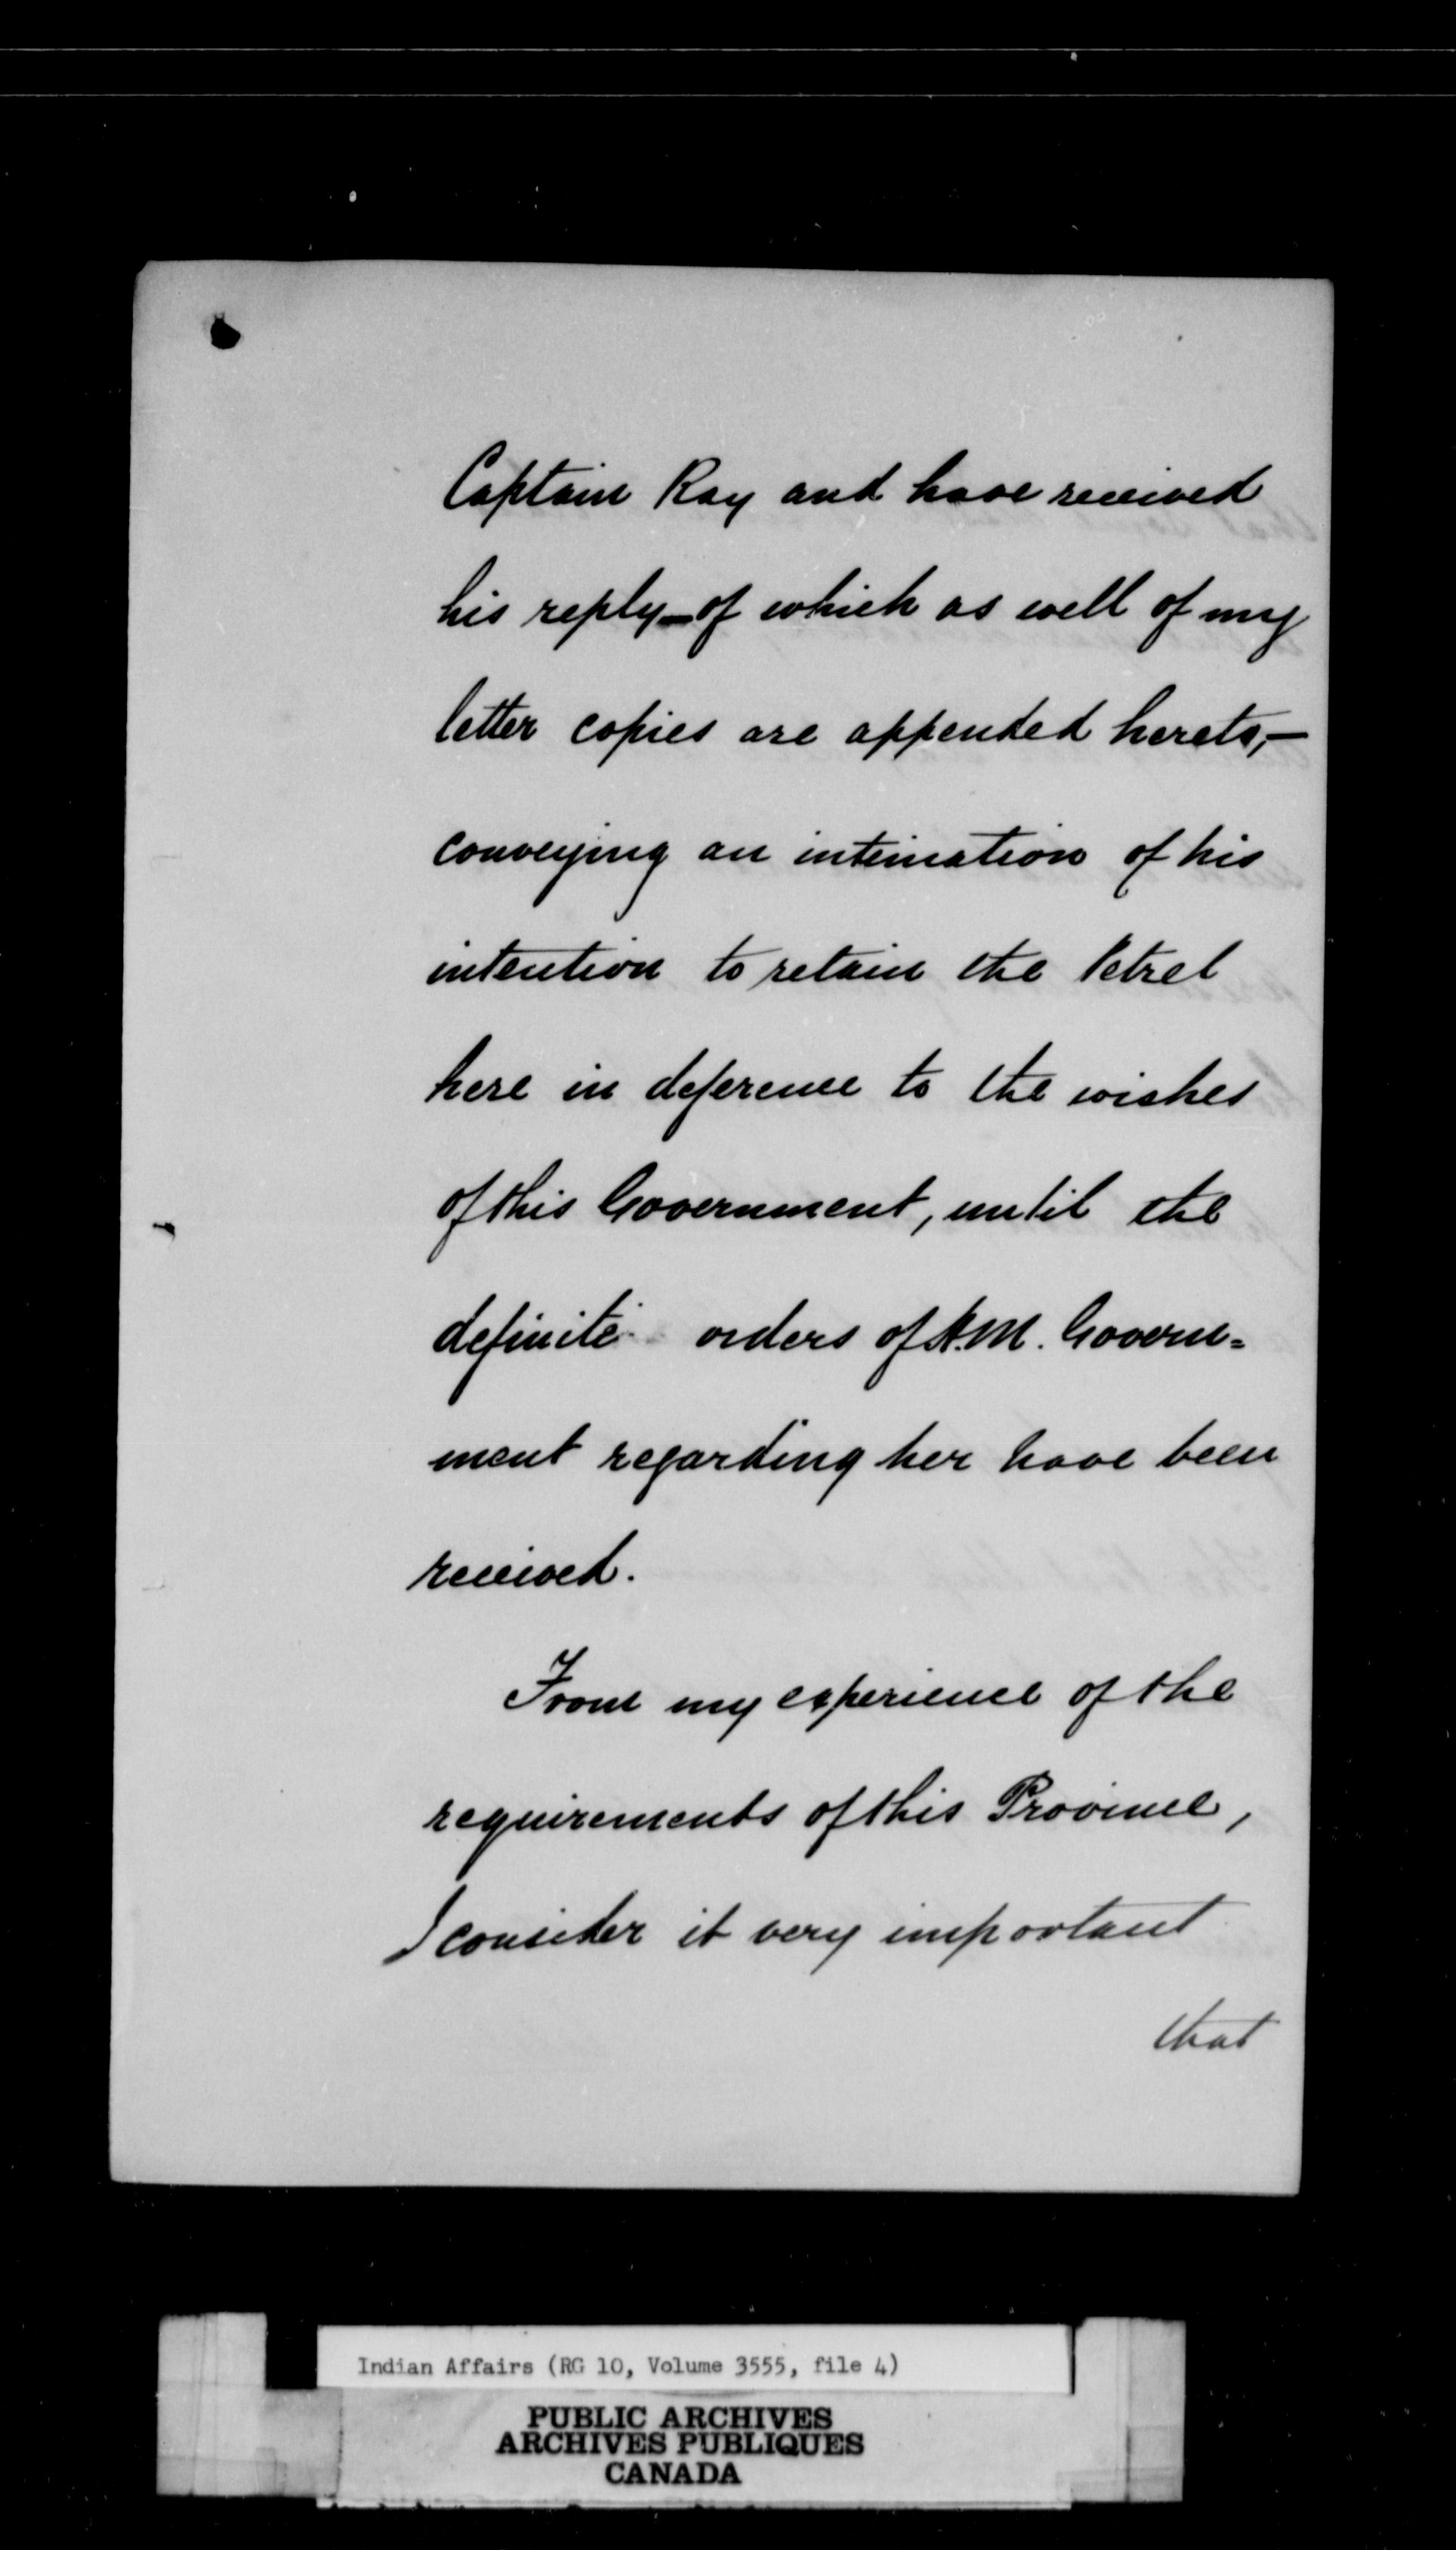 Captain Ray and have received
his reply_of which as well of my
letter copies are appended hereto,—
conveying an intimation of his
intention to retain the Petrel
here in deference to the wishes
of this Government, until the
definite orders of H.M. Govern=
ment regarding her have been
received.
From my experience of the
requirements of this Province,
I consider it very important
that
Indian Affairs (RG 10, Volume 3555, file 4)
PUBLIC ARCHIVES
ARCHIVES PUBLIQUES
CANADA